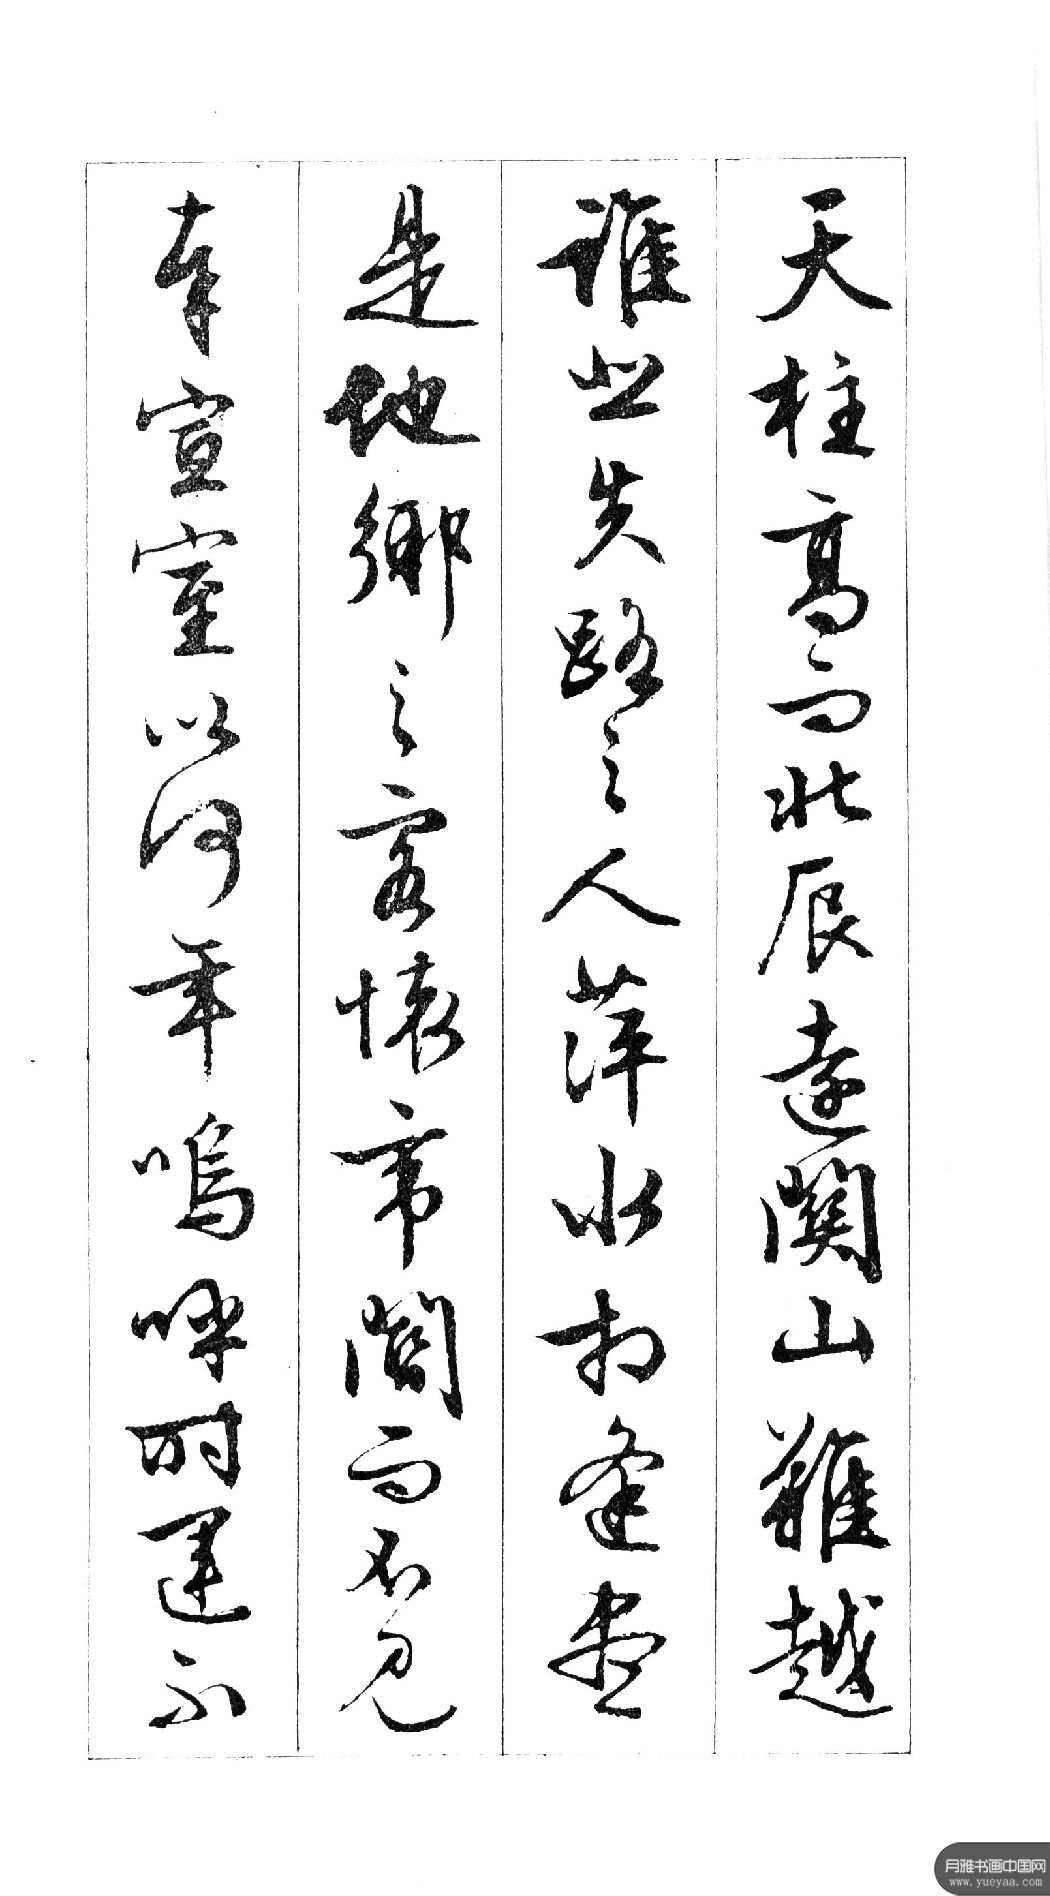 天柱高而北辰遠關山難越
誰悲失路之人萍水相逢盡
是他鄉之客懷帝閽而不見
奉宣室以何年嗚呼時運不
月雅书画中国网
www.yueyaa.com